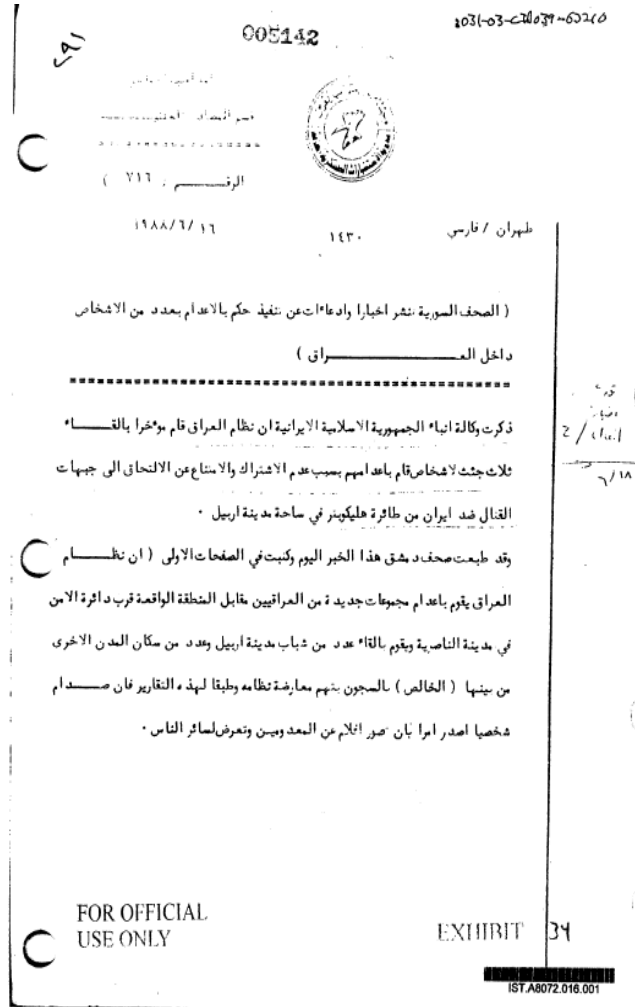 005142
قسم
الرقـــــم ( ٧١٦ )
١٩٨٨/٦/١٦
١٤٣٠
طهران / فارسي
( الصحف السورية تنشر اخبارا وادعاءات عن تنفيذ حكم بالاعدام بعدد من الاشخاص
داخل العـــــــــــــــــراق )
ذكرت وكالة انباء الجمهورية الاسلامية الايرانية ان نظام العراق قام موءخرا بالقـــاء
ثلاث جثث لاشخاص قام باعدامهم بسبب عدم الاشتراك والامتناع عن الالتحاق الى جبهات
القتال ضد ايران من طائرة هليكوبتر في ساحة مدينة اربيل ٠
وقد طبعت صحف دمشق هذا الخبر اليوم وكتبت في الصفحات الاولى ( ان نظــــام
العراق يقوم باعدام مجموعات جديدة من العراقيين مقابل المنطقة الواقعة قرب دائرة الامن
في مدينة الناصرية ويقوم بالقاء عدد من شباب مدينة اربيل وعدد من سكان المدن الاخرى
من بينها ( الخالص ) بالسجون بتهم معارضة نظامه وطبقا لهذه التقارير فان صــــدام
شخصيا اصدر امرا بان تصور افلام عن المعدومين وتعرض لسائر الناس ٠
٦/١٨
FOR OFFICIAL
USE ONLY
EXHIBIT 34
IST.A8072.016.001